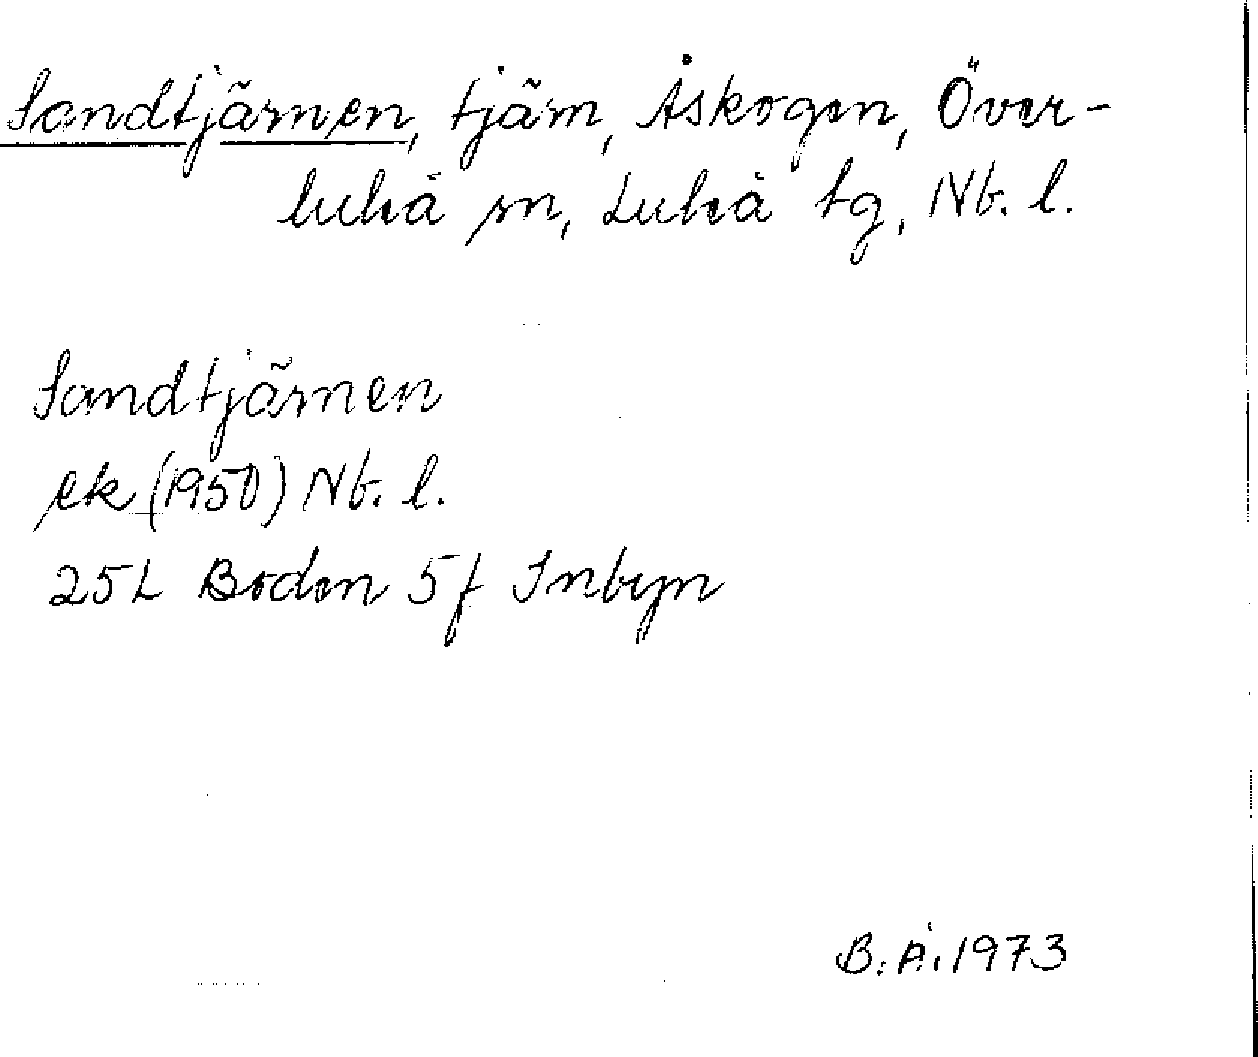 Sandtjärnen, tjärn, Åskogen, Över-
luleå sn, Luleå tg, Nb. l.
Sandtjärnen
ek (1950) Nb. l.
25L Boden 5f Inbyn
B. Å. 1973